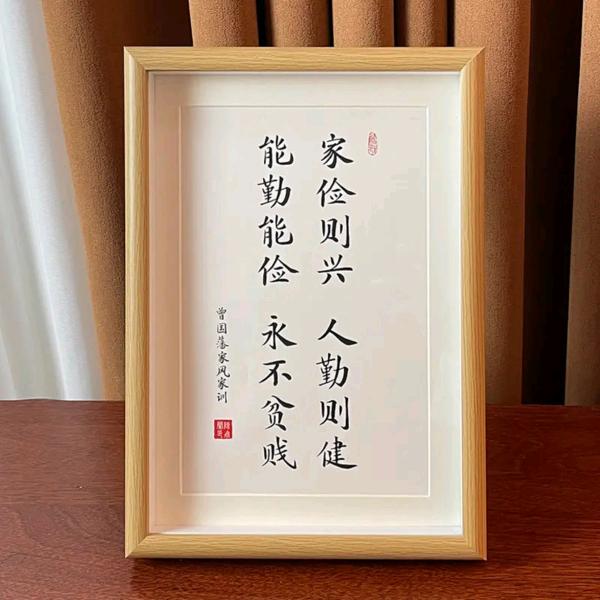 家俭则兴 人勤则健
能勤能俭 永不贫贱
曾国藩家风家训